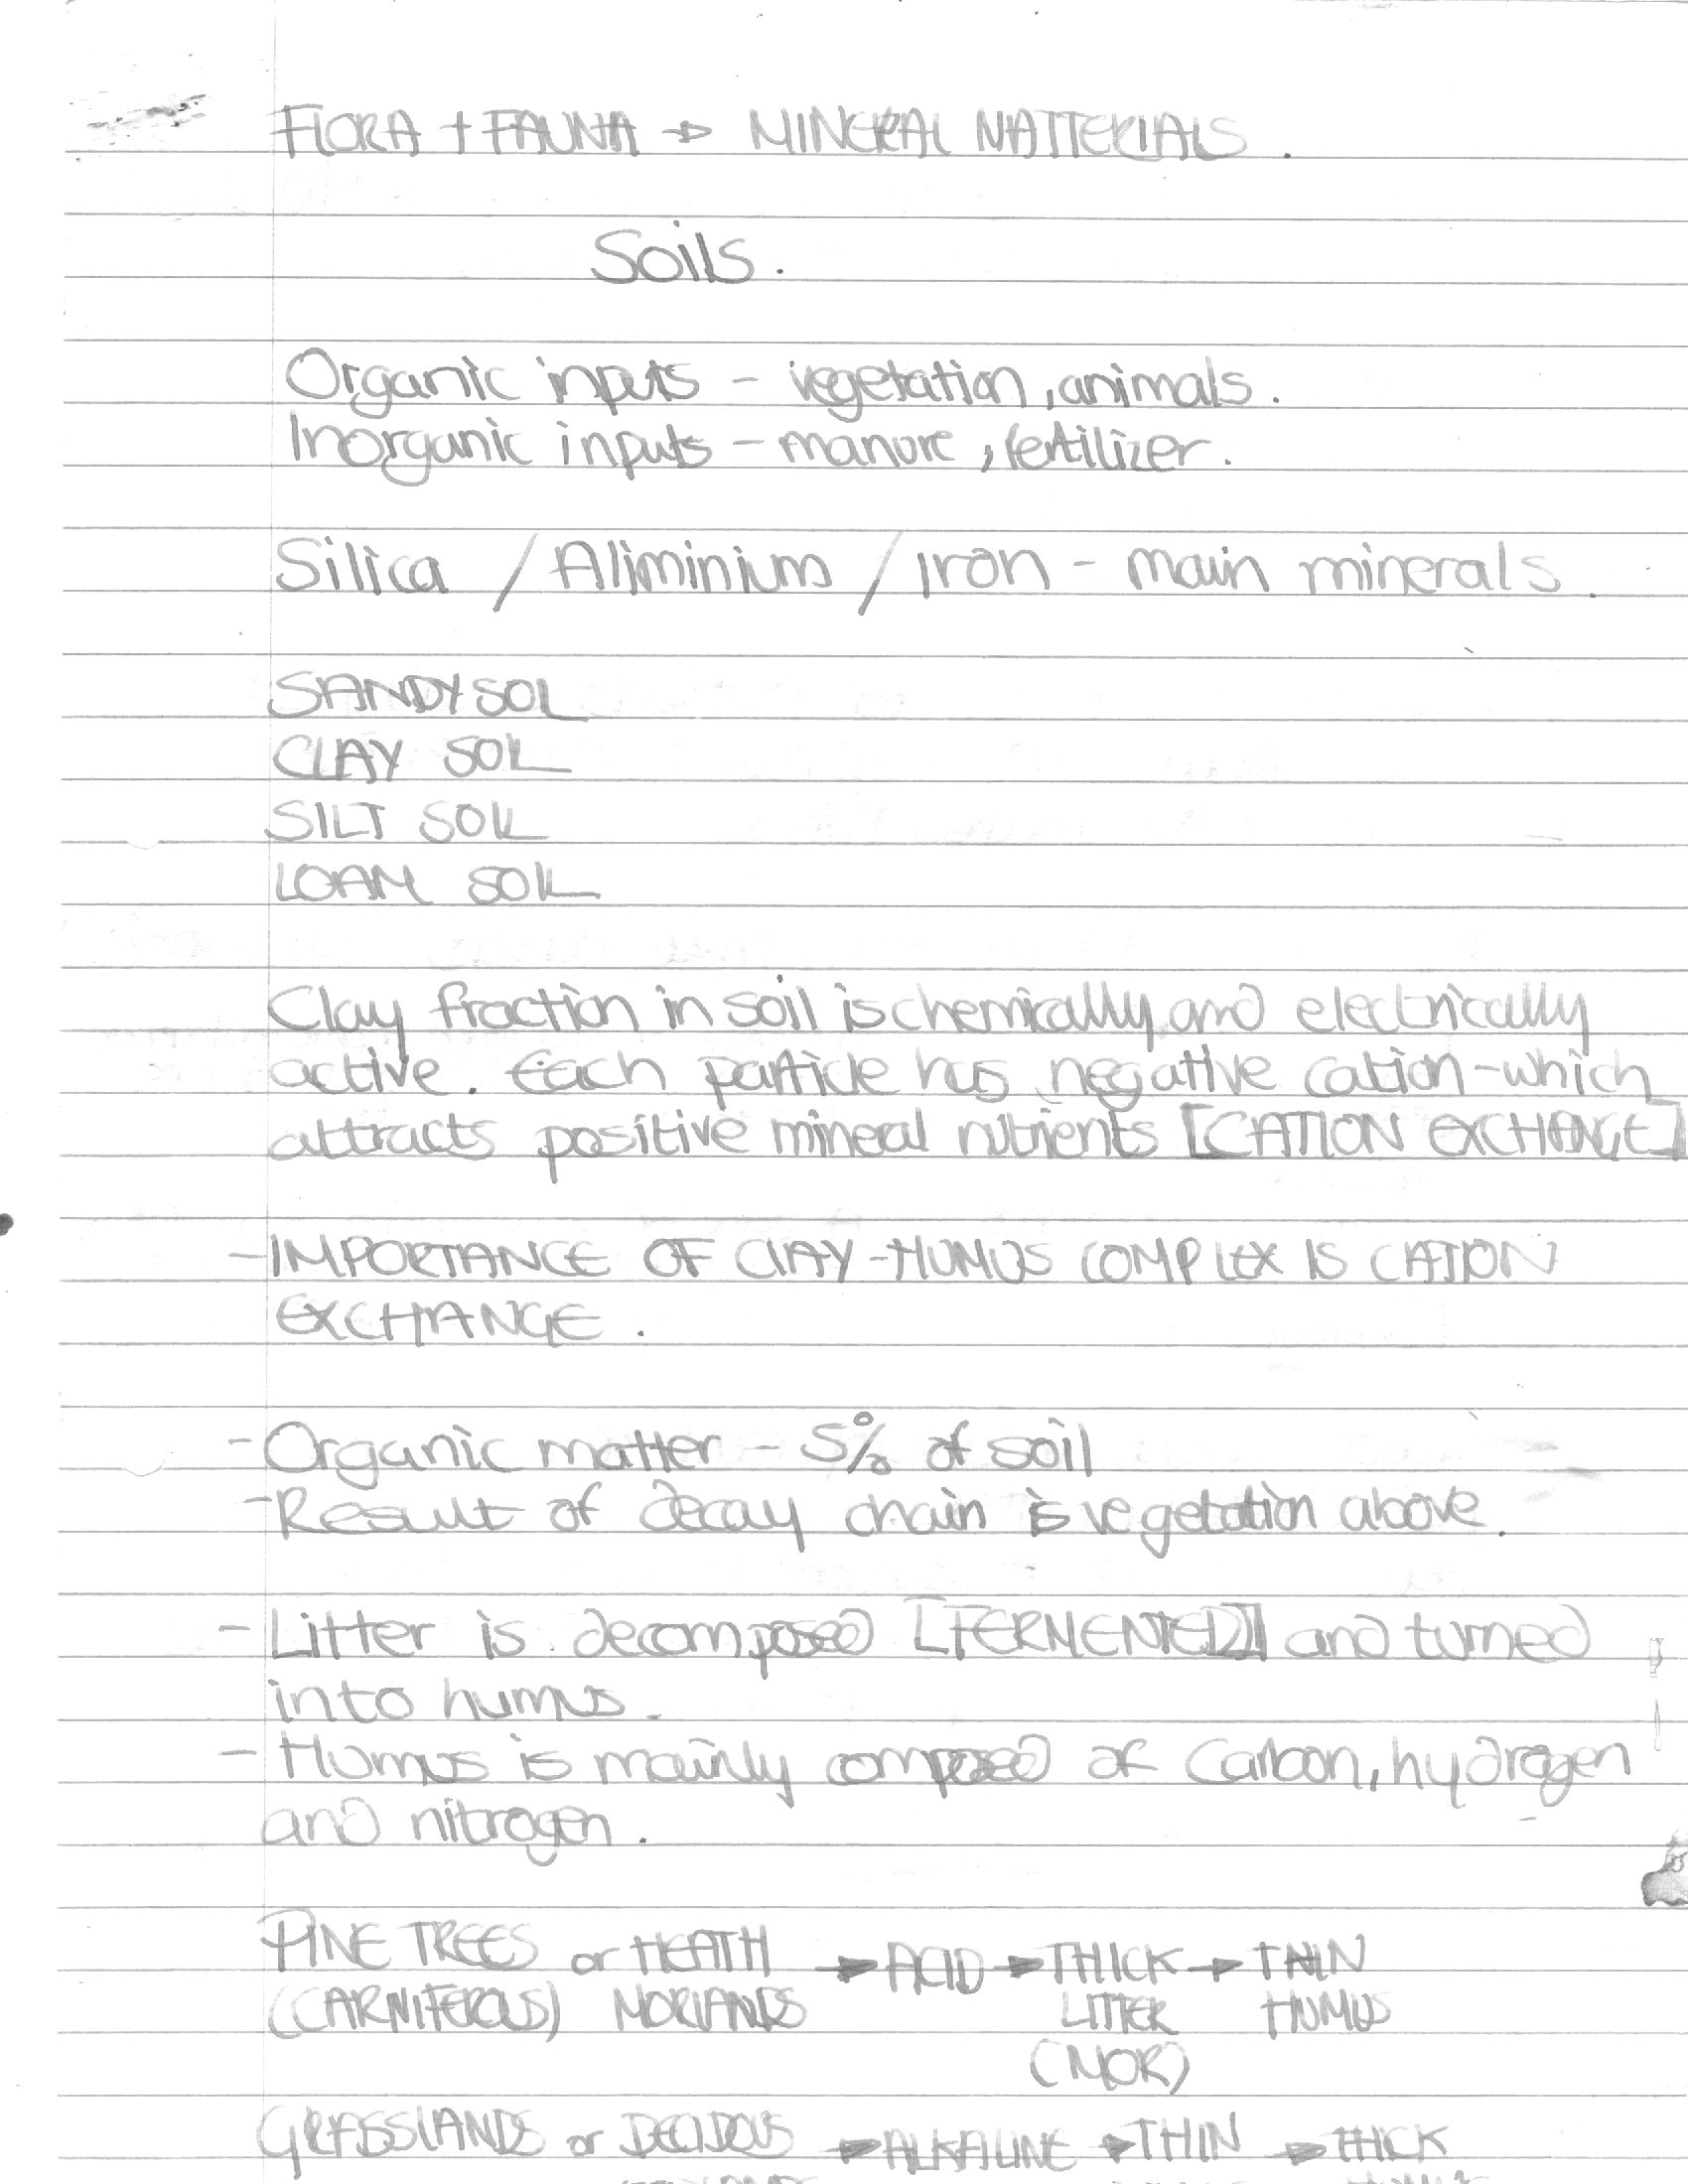 FLORA + FAUNA → MINERAL MATTERIALS.
Soils.
Organic inputs - vegetation, animals.
Inorganic inputs - manure, fertilizer.
Silica / Aliminium / Iron - main minerals.
SANDY SOIL
CLAY SOIL
SILT SOIL
LOAM SOIL
Clay fraction in soil is chemically and electrically
active. Each particle has negative cation - which
attracts positive mineral nutrients [CATION EXCHANGE]
- IMPORTANCE OF CLAY-HUMUS COMPLEX IS CATION
EXCHANGE.
- Organic matter - 5% of soil
- Result of decay chain is vegetation above.
- Litter is decomposed [FERMENTED] and turned
into humus.
- Humus is mainly composed of Carbon, hydrogen
and nitrogen.
PINE TREES or HEATH → ACID → THICK → THIN
(CARNIFEROUS) MORLANDS LITTER HUMUS
(MOR)
GRASSLANDS or DECIDOUS → ALKALINE → THIN → THICK